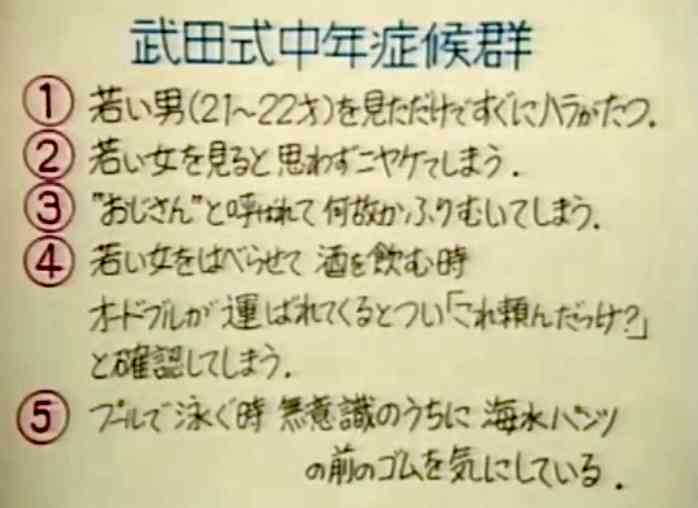 武田式中年症候群
① 若い男(21～22才)を見ただけですぐにハラがたつ.
② 若い女を見ると思わずニヤケてしまう.
③ "おじさん"と呼ばれて何故かふりむいてしまう.
④ 若い女をはべらせて 酒を飲む時
オードブルが運ばれてくるとつい「これ頼んだっけ?」
と確認してしまう.
⑤ プールで泳ぐ時 無意識のうちに 海水パンツ
の前のゴムを気にしている.